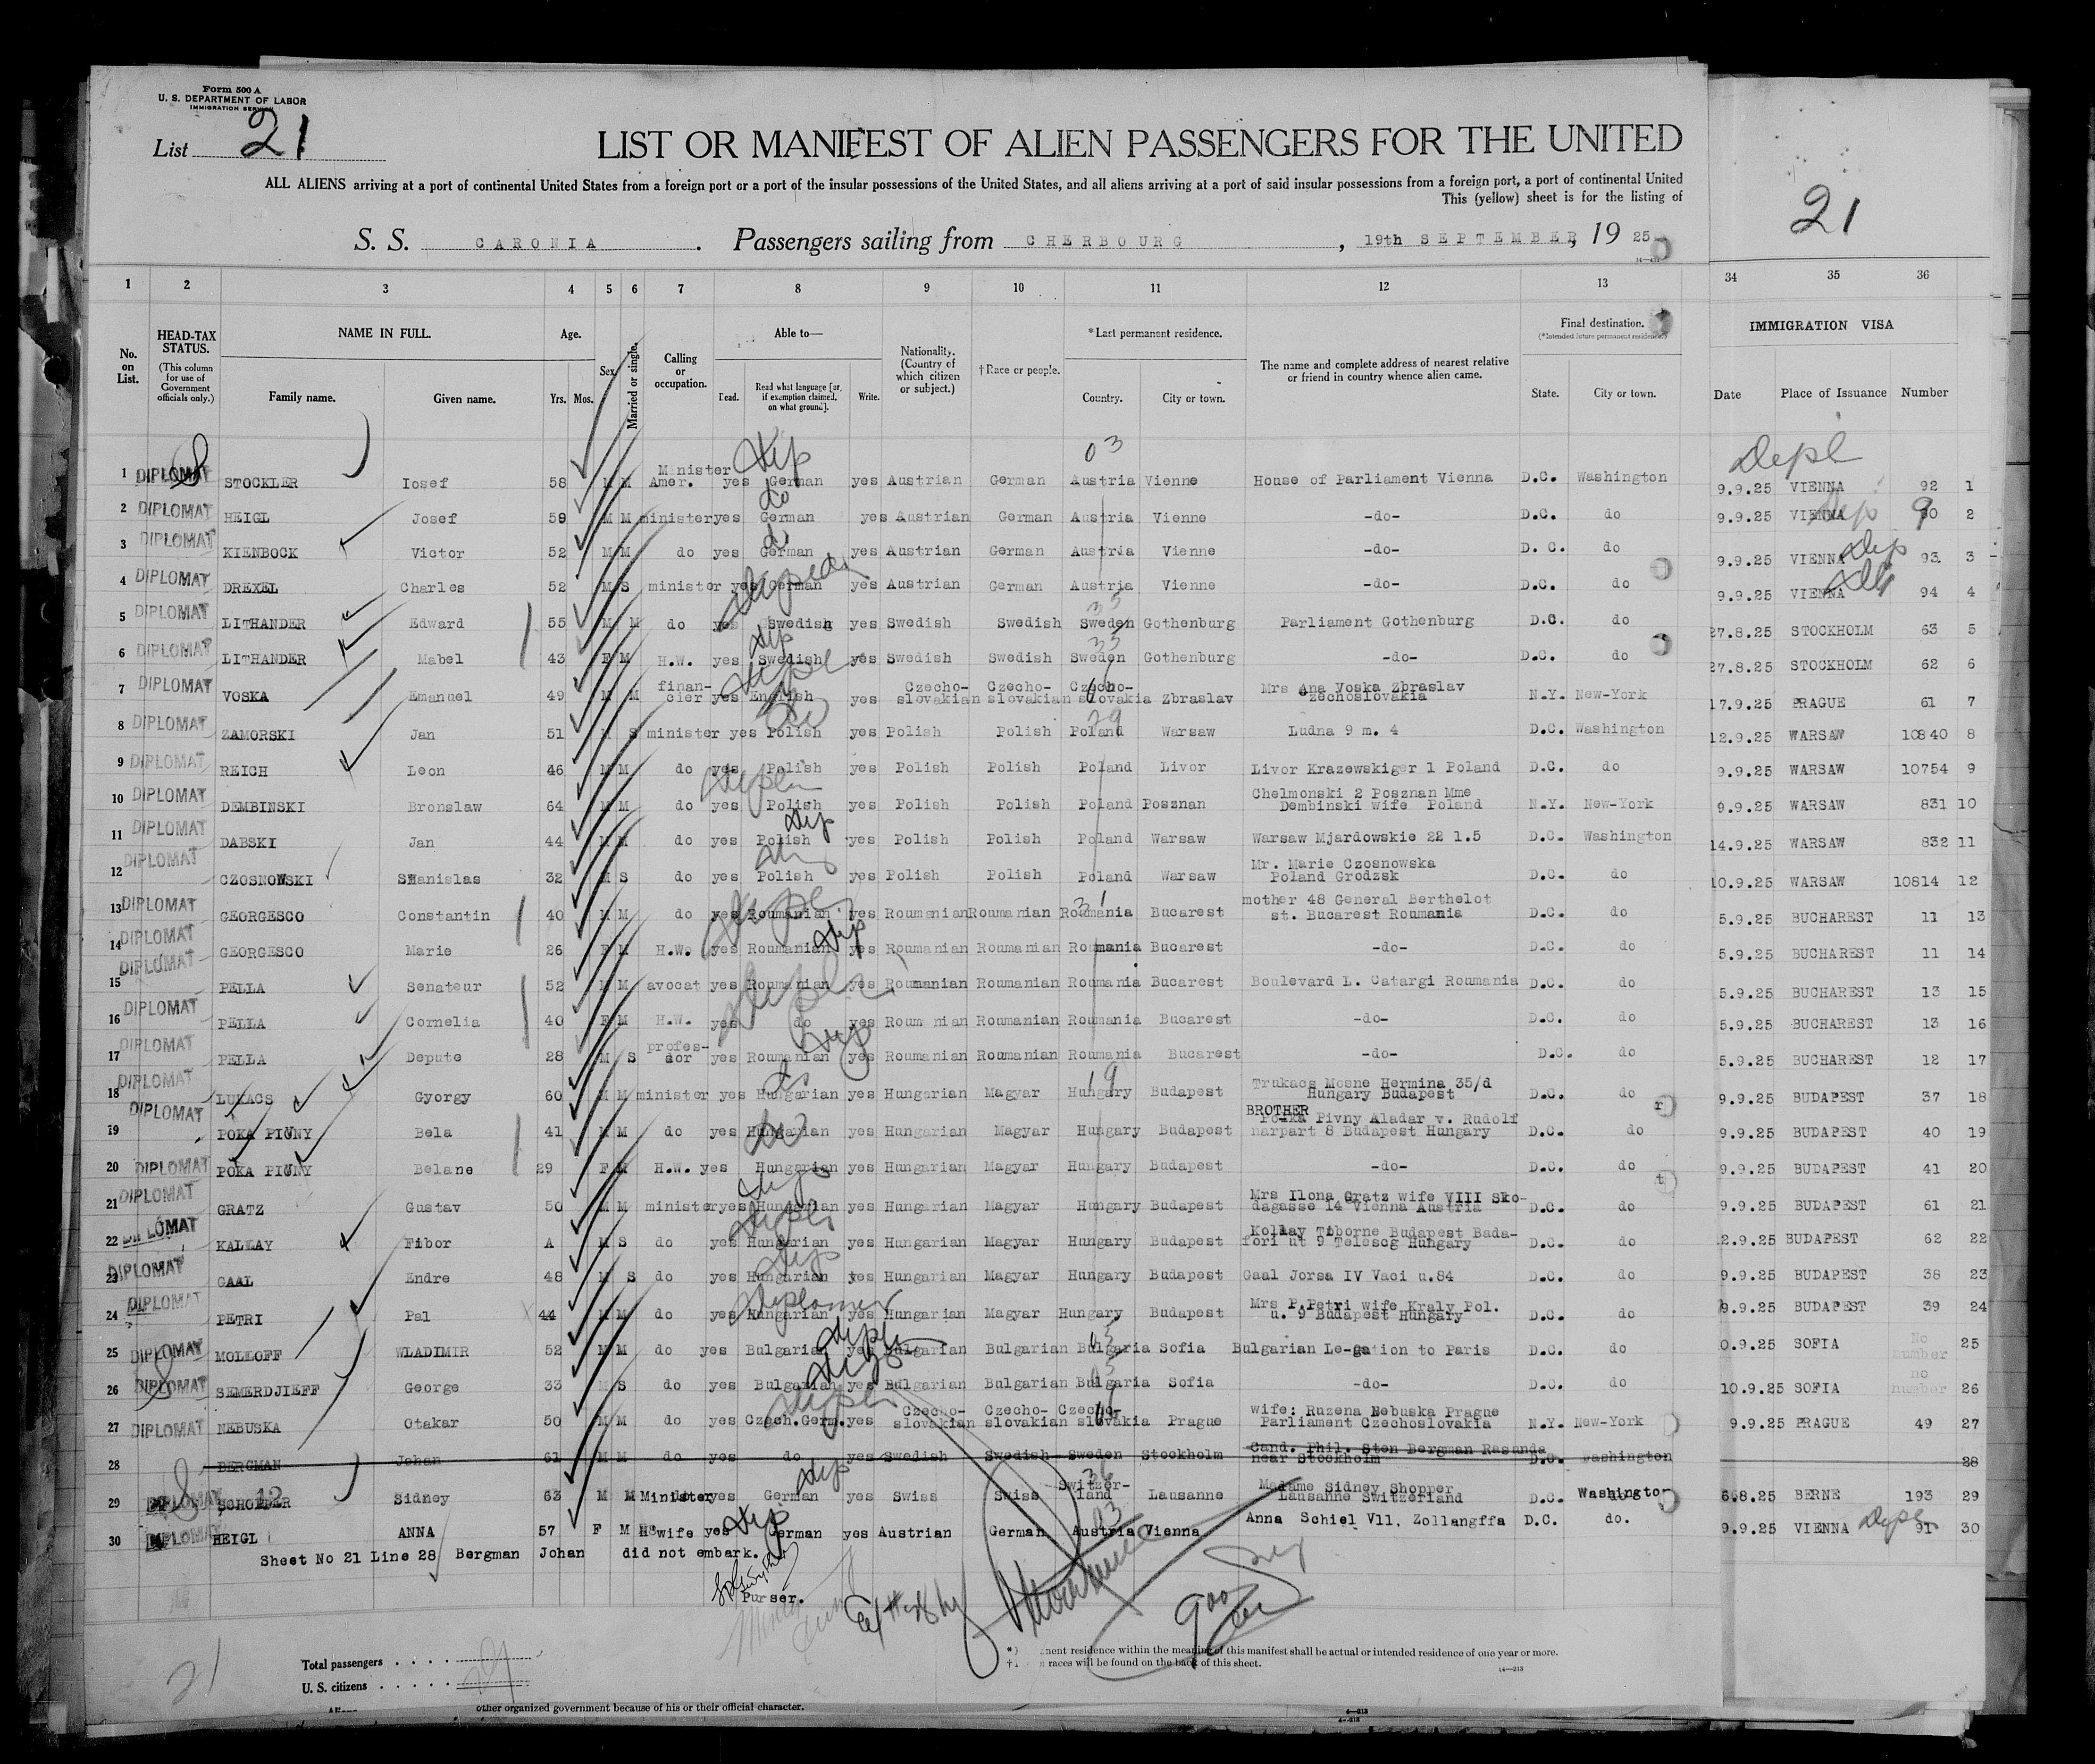 Form 500 A
U. S. DEPARTMENT OF LABOR
IMMIGRATION SERVICE
List 21
LIST OR MANIFEST OF ALIEN PASSENGERS FOR THE UNITED
ALL ALIENS arriving at a port of continental United States from a foreign port or a port of the insular possessions of the United States, and all aliens arriving at a port of said insular possessions from a foreign port, a port of continental United
This (yellow) sheet is for the listing of
21
S. S. CARONIA. Passengers sailing from CHERBOURG, 19th SEPTEMBER, 1925
1 2 3 4 5 6 7 8 9 10 11 12 13 34 35 36
No. on List.
HEAD-TAX STATUS.
(This column for use of Government officials only.)
NAME IN FULL.
Family name. Given name.
Age.
Yrs. Mos.
Sex.
Married or single.
Calling or occupation.
Able to—
Read. Read what language [or, if exemption claimed, on what ground]. Write.
Nationality. (Country of which citizen or subject.)
†Race or people.
*Last permanent residence.
Country. City or town.
The name and complete address of nearest relative or friend in country whence alien came.
Final destination.
(*Intended future permanent residence)
State. City or town.
IMMIGRATION VISA
Date Place of Issuance Number
1 DIPLOMAT STOCKLER Iosef 58 M M Minister Amer. yes German yes Austrian German Austria Vienne House of Parliament Vienna D.C. Washington 9.9.25 VIENNA 92 1
2 DIPLOMAT HEIGL Josef 59 M M minister yes German yes Austrian German Austria Vienne -do- D.C. do 9.9.25 VIENNA 90 2
3 DIPLOMAT KIENBOCK Victor 52 M M do yes German yes Austrian German Austria Vienne -do- D. C. do 9.9.25 VIENNA 93 3
4 DIPLOMAT DREXEL Charles 52 M S minister yes German yes Austrian German Austria Vienne -do- D.C. do 9.9.25 VIENNA 94 4
5 DIPLOMAT LITHANDER Edward 55 M M do yes Swedish yes Swedish Swedish Sweden Gothenburg Parliament Gothenburg D.C. do 27.8.25 STOCKHOLM 63 5
6 DIPLOMAT LITHANDER Mabel 43 F M H.W. yes Swedish yes Swedish Swedish Sweden Gothenburg -do- D.C. do 27.8.25 STOCKHOLM 62 6
7 DIPLOMAT VOSKA Emanuel 49 M M finan-cier yes English yes Czecho-slovakian Czecho-slovakian Czecho-slovakia Zbraslav Mrs Ana Voska Zbraslav Czechoslovakia N.Y. New-York 17.9.25 PRAGUE 61 7
8 DIPLOMAT ZAMORSKI Jan 51 M S minister yes Polish yes Polish Polish Poland Warsaw Ludna 9 m. 4 D.C. Washington 12.9.25 WARSAW 10840 8
9 DIPLOMAT REICH Leon 46 M M do yes Polish yes Polish Polish Poland Livor Livor Krazewskiger 1 Poland D.C. do 9.9.25 WARSAW 10754 9
10 DIPLOMAT DEMBINSKI Bronslaw 64 M M do yes Polish yes Polish Polish Poland Posznan Chelmonski 2 Posznan Mme Dembinski wife Poland N.Y. New-York 9.9.25 WARSAW 831 10
11 DIPLOMAT DABSKI Jan 44 M M do yes Polish yes Polish Polish Poland Warsaw Warsaw Mjardowskie 22 1.5 D.C. Washington 14.9.25 WARSAW 832 11
12 DIPLOMAT CZOSNOWSKI Stanislas 32 M S do yes Polish yes Polish Polish Poland Warsaw Mr. Marie Czosnowska Poland Grodzsk D.C. do 10.9.25 WARSAW 10814 12
13 DIPLOMAT GEORGESCO Constantin 40 M M do yes Roumanian yes Roumanian Roumanian Roumania Bucarest mother 48 General Berthelot st. Bucarest Roumania D.C. do 5.9.25 BUCHAREST 11 13
14 DIPLOMAT GEORGESCO Marie 26 F M H.W. yes Roumanian yes Roumanian Roumanian Roumania Bucarest -do- D.C. do 5.9.25 BUCHAREST 11 14
15 DIPLOMAT PELLA Senateur 52 M M avocat yes Roumanian yes Roumanian Roumanian Roumania Bucarest Boulevard L. Catargi Roumania D.C. do 5.9.25 BUCHAREST 13 15
16 DIPLOMAT PELLA Cornelia 40 F M H.W. yes do yes Roumanian Roumanian Roumania Bucarest -do- D.C. do 5.9.25 BUCHAREST 13 16
17 DIPLOMAT PELLA Depute 28 M S profes-dor yes Roumanian yes Roumanian Roumanian Roumania Bucarest -do- D.C. do 5.9.25 BUCHAREST 12 17
18 DIPLOMAT LUKACS Gyorgy 60 M M minister yes Hungarian yes Hungarian Magyar Hungary Budapest Trukacs Mosne Hermina 35/d Hungary Budapest D.C. do 9.9.25 BUDAPEST 37 18
19 DIPLOMAT POKA PIVNY Bela 41 M M do yes Hungarian yes Hungarian Magyar Hungary Budapest BROTHER Po-ka Pivny Aladar v. Rudolf narpart 8 Budapest Hungary D.C. do 9.9.25 BUDAPEST 40 19
20 DIPLOMAT POKA PIVNY Belane 29 F M H.W. yes Hungarian yes Hungarian Magyar Hungary Budapest -do- D.C. do 9.9.25 BUDAPEST 41 20
21 DIPLOMAT GRATZ Gustav 50 M M minister yes Hungarian yes Hungarian Magyar Hungary Budapest Mrs Ilona Gratz wife VIII Sko-dagasse 14 Vienna Austria D.C. do 9.9.25 BUDAPEST 61 21
22 DIPLOMAT KALLAY Fibor A M S do yes Hungarian yes Hungarian Magyar Hungary Budapest Kollay Tiborne Budapest Bada-fori ut 9 Telescg Hungary D.C. do 2.9.25 BUDAPEST 62 22
23 DIPLOMAT GAAL Endre 48 M S do yes Hungarian yes Hungarian Magyar Hungary Budapest Gaal Jorsa IV Vaci u.84 D.C. do 9.9.25 BUDAPEST 38 23
24 DIPLOMAT PETRI Pal 44 M M do yes Hungarian yes Hungarian Magyar Hungary Budapest Mrs P.Petri wife Kraly Pol. u. 9 Budapest Hungary D.C. do 9.9.25 BUDAPEST 39 24
25 DIPLOMAT MOLLOFF WLADIMIR 52 M M do yes Bulgarian yes Bulgarian Bulgarian Bulgaria Sofia Bulgarian Le-gation to Paris D.C. do 0.9.25 SOFIA No number 25
26 DIPLOMAT SEMERDJIEFF George 33 M S do yes Bulgarian yes Bulgarian Bulgarian Bulgaria Sofia -do- D.C. do 10.9.25 SOFIA no number 26
27 DIPLOMAT NEBUSKA Otakar 50 M M do yes Czech.Germ. yes Czecho-slovakian Czecho-slovakian Czecho-slovakia Prague wife: Ruzena Nebuska Prague Parliament Czechoslovakia N.Y. New-York 9.9.25 PRAGUE 49 27
28 BERGMAN Johan 61 M M do yes do yes Swedish Swedish Sweden Stockholm Cand. Phil. Sten Bergman Rasanda near Stockholm D.C. Washington 28
29 DIPLOMAT SCHOPFER Sidney 63 M M Minister yes German yes Swiss Swiss Switzer-land Lausanne Madame Sidney Shopper Lausanne Switzerland D.C. Washington 6.8.25 BERNE 193 29
30 DIPLOMAT HEIGL ANNA 57 F M H wife yes German yes Austrian German Austria Vienna Anna Schiel Vll. Zollangffa D.C. do. 9.9.25 VIENNA 91 30
Sheet No 21 Line 28 Bergman Johan did not embark.
Purser.
21
Total passengers . . . .
U. S. citizens . . . . .
nent residence within the meaning of this manifest shall be actual or intended residence of one year or more.
races will be found on the back of this sheet.
14—213
other organized government because of his or their official character.